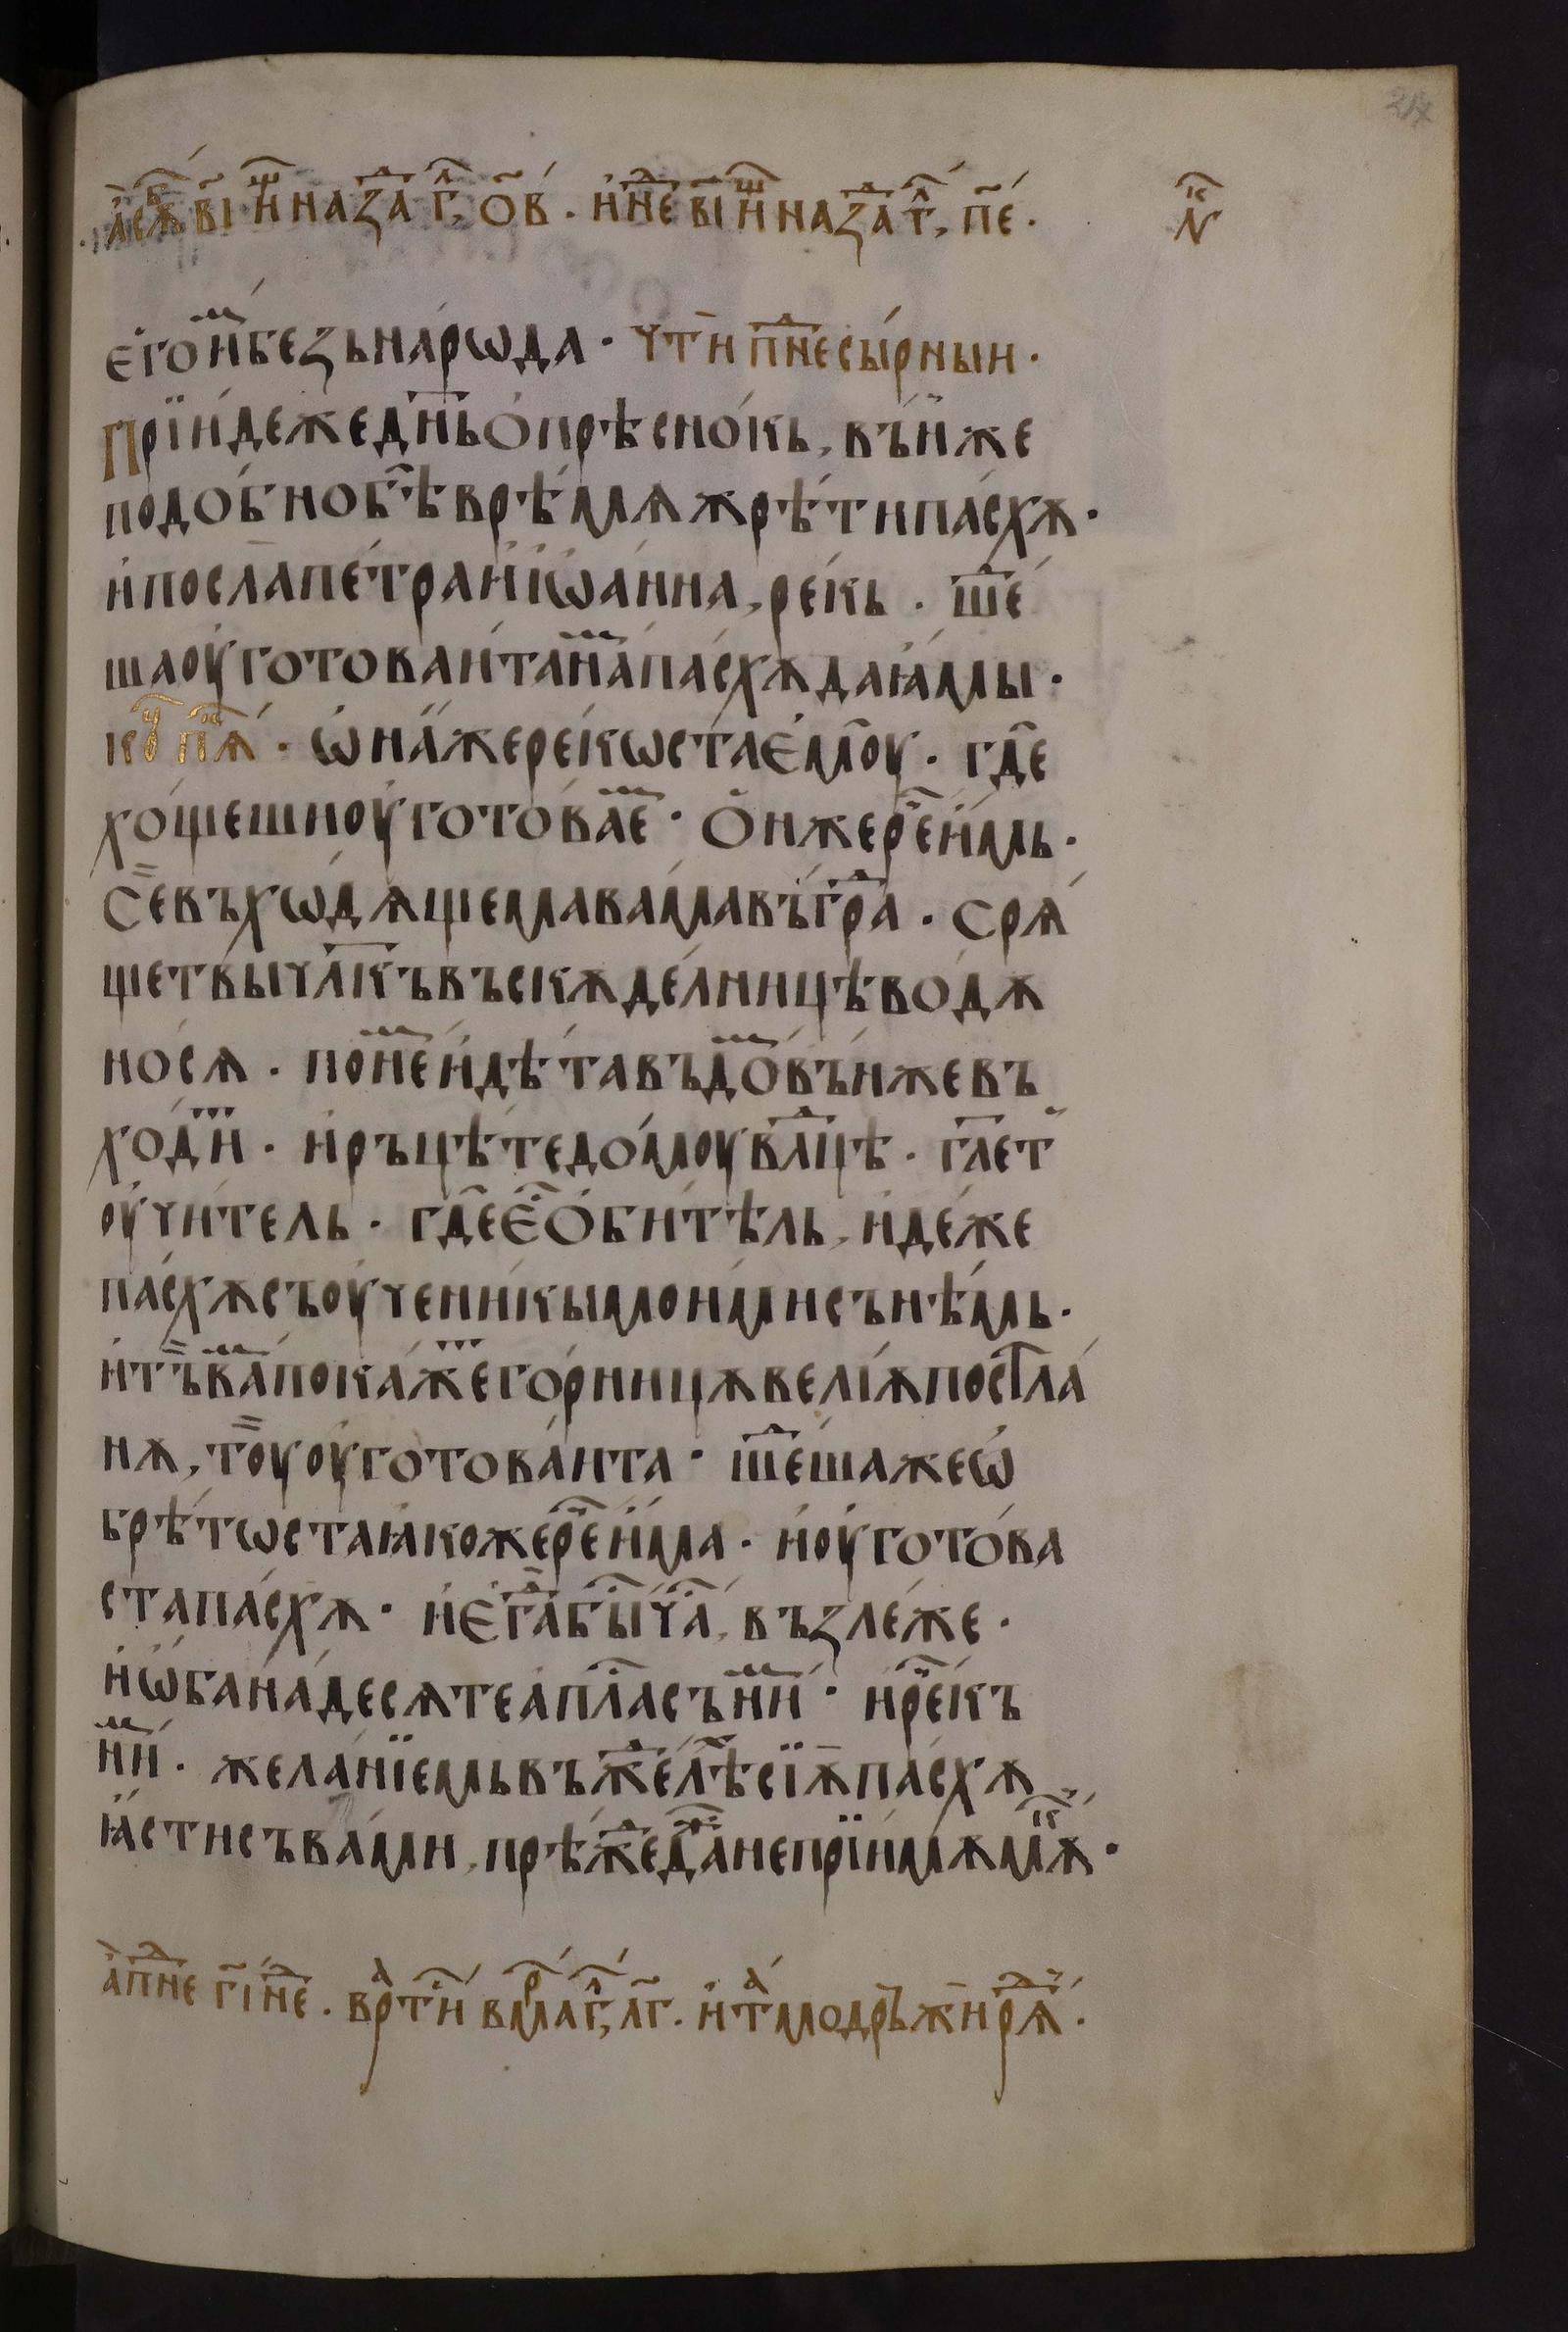 а҆сѫ͡в в҃і ѝ͡щ наза̑д г҃л, о҃в. и҆ н̑ⷣе в҃і ѝ͡щ наза̑д г҃л, п҃е. н҃к
є҆го̀ и҆ⷨ без ь нарѡда · чт҃и пн̑ⷣе сырныи ·
Прїи́де же дн҃ь ѻпрѣснѻ́кь, въ́н же
подѻ́бно бѣ̀ врѣ́мѧ жрѣ́ти па́схѫ ·
и҆ посла̀ петра и҆ і҆ѡа́нна, ре́кь . шⷣе́
ша оу҆готова́ита на̀ⷨ па́схѫ да ꙗ҆мы ·
коⷱ҇ пⷭ҇ѧ · ѡ҆на́ же реко́ста є҆мо̀у . гдѐ
хо́щеши оу҆готѻ́ваѐⷨ · Ѻ҆н же рече̑ и҆́мь ·
Се̏ въхѡдѧщема ва́ма въ гра̑ⷣ . срѧ́
щет вы̀ чл҃къ въ скѫде́лницѣ во́дѫ
но́сѧ . по нѐⷨ и҆дѣ́та въ дѻ́ⷨ въ́н же въ
хѻ́диⷮ . и҆ ръцѣ́те до́моу влⷣцѣ . гл҃ет
оу҆чи́тель . гдѐ є҆̑ Ѻ҆би́тѣль, и҆де́же
па́схѫ съ оу҆ченикы̀ мои́ми сънѣ́мь ·
и҆ тъ̏ ва̀ⷨ пока́жеⷮ горницѫ ве́лїѫ посⷮла́
нѫ, то̏у оу҆готова́ита · шⷣе́ша же ѡ҆
брѣ́тѡста ꙗ҆́коже рече̑ и҆́ма . и҆ оу҆готѻ́ва
ста па́схѫ · и҆ є҆гⷣа̀ бы̑ ча̑, възле́же .
и҆ ѡ҆бана́десѧте ап҃ла съ ни́ⷨ · и҆ ре̑къ
ни́ⷨ . жела́нїемь въжⷣелѣ̀ сїѫ̀ па́схѫ
ꙗ҆́сти съ ва́ми, прѣ́жⷣе да̑же не прїи́мѫ мѫ̑к ·
а҆ пн̑ⷣе г҃і н̑ⷣе . врⷶти̑ в мⷬа г҃л, л҃г . и҆ тⷶмо дръжи рⷣѧ .